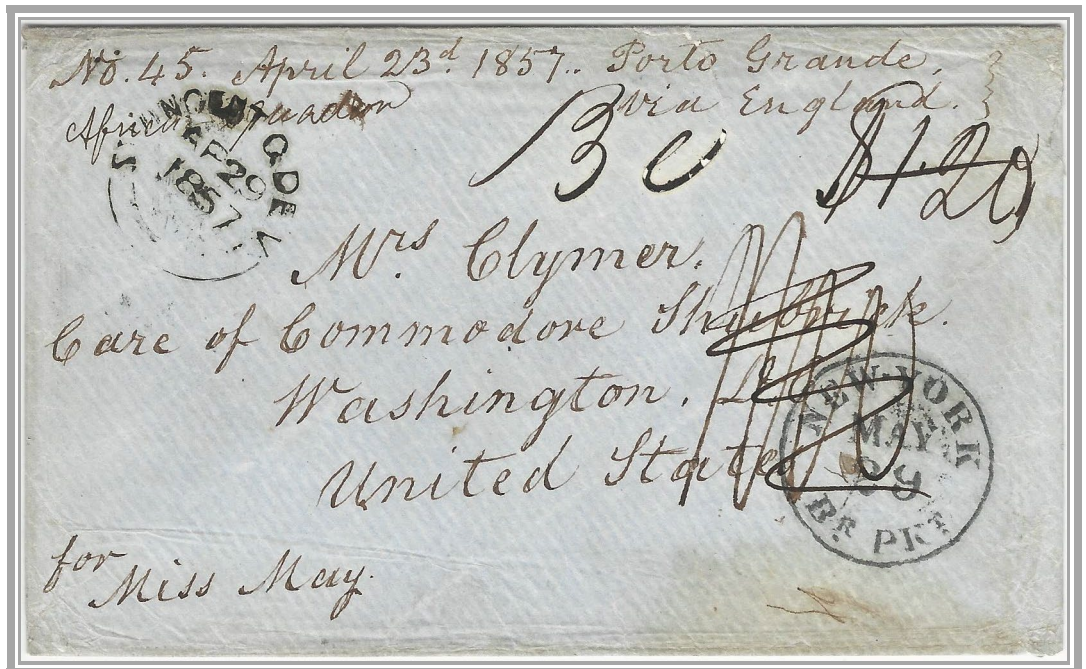 No. 45. April 23d 1857. Porto Grande,
Africa Squadron via England.
AP 29
1857
3 $1.20
Mrs Clymer.
Care of Commodore Shubrick.
Washington. D.C.
United States
NEW-YORK
MAY
29
BR. PKT
for
Miss May.